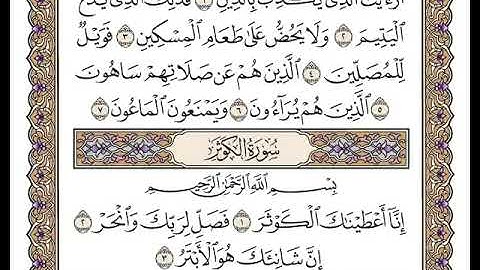 أَرَءَيْتَ الَّذِي يُكَذِّبُ بِالدِّينِ ۝١ فَذَٰلِكَ الَّذِي يَدُعُّ
الْيَتِيمَ ۝٢ وَلَا يَحُضُّ عَلَىٰ طَعَامِ الْمِسْكِينِ ۝٣ فَوَيْلٌ
لِّلْمُصَلِّينَ ۝٤ الَّذِينَ هُمْ عَن صَلَاتِهِمْ سَاهُونَ
۝٥ الَّذِينَ هُمْ يُرَآءُونَ ۝٦ وَيَمْنَعُونَ الْمَاعُونَ ۝٧
سُورَةُ الْكَوْثَر
بِسْمِ اللَّهِ الرَّحْمَٰنِ الرَّحِيمِ
إِنَّآ أَعْطَيْنَاكَ الْكَوْثَرَ ۝١ فَصَلِّ لِرَبِّكَ وَانْحَرْ ۝٢
إِنَّ شَانِئَكَ هُوَ الْأَبْتَرُ ۝٣